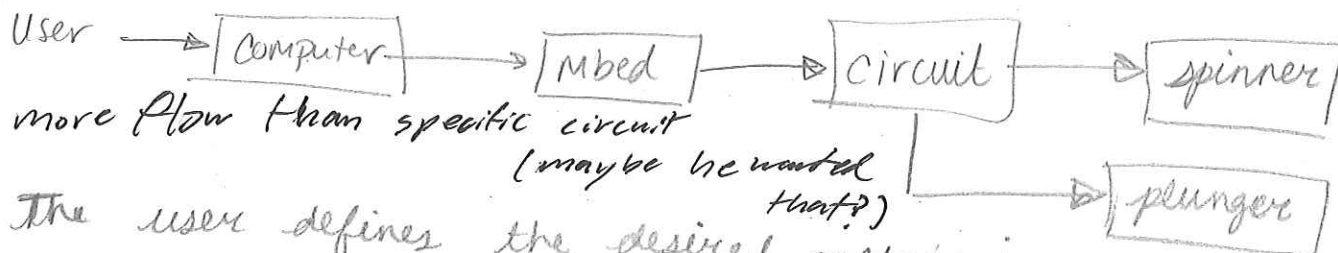 User Computer Mbed Circuit spinner
more flow than specific circuit
(maybe he wanted
that?)
plunger
The user defines the desired